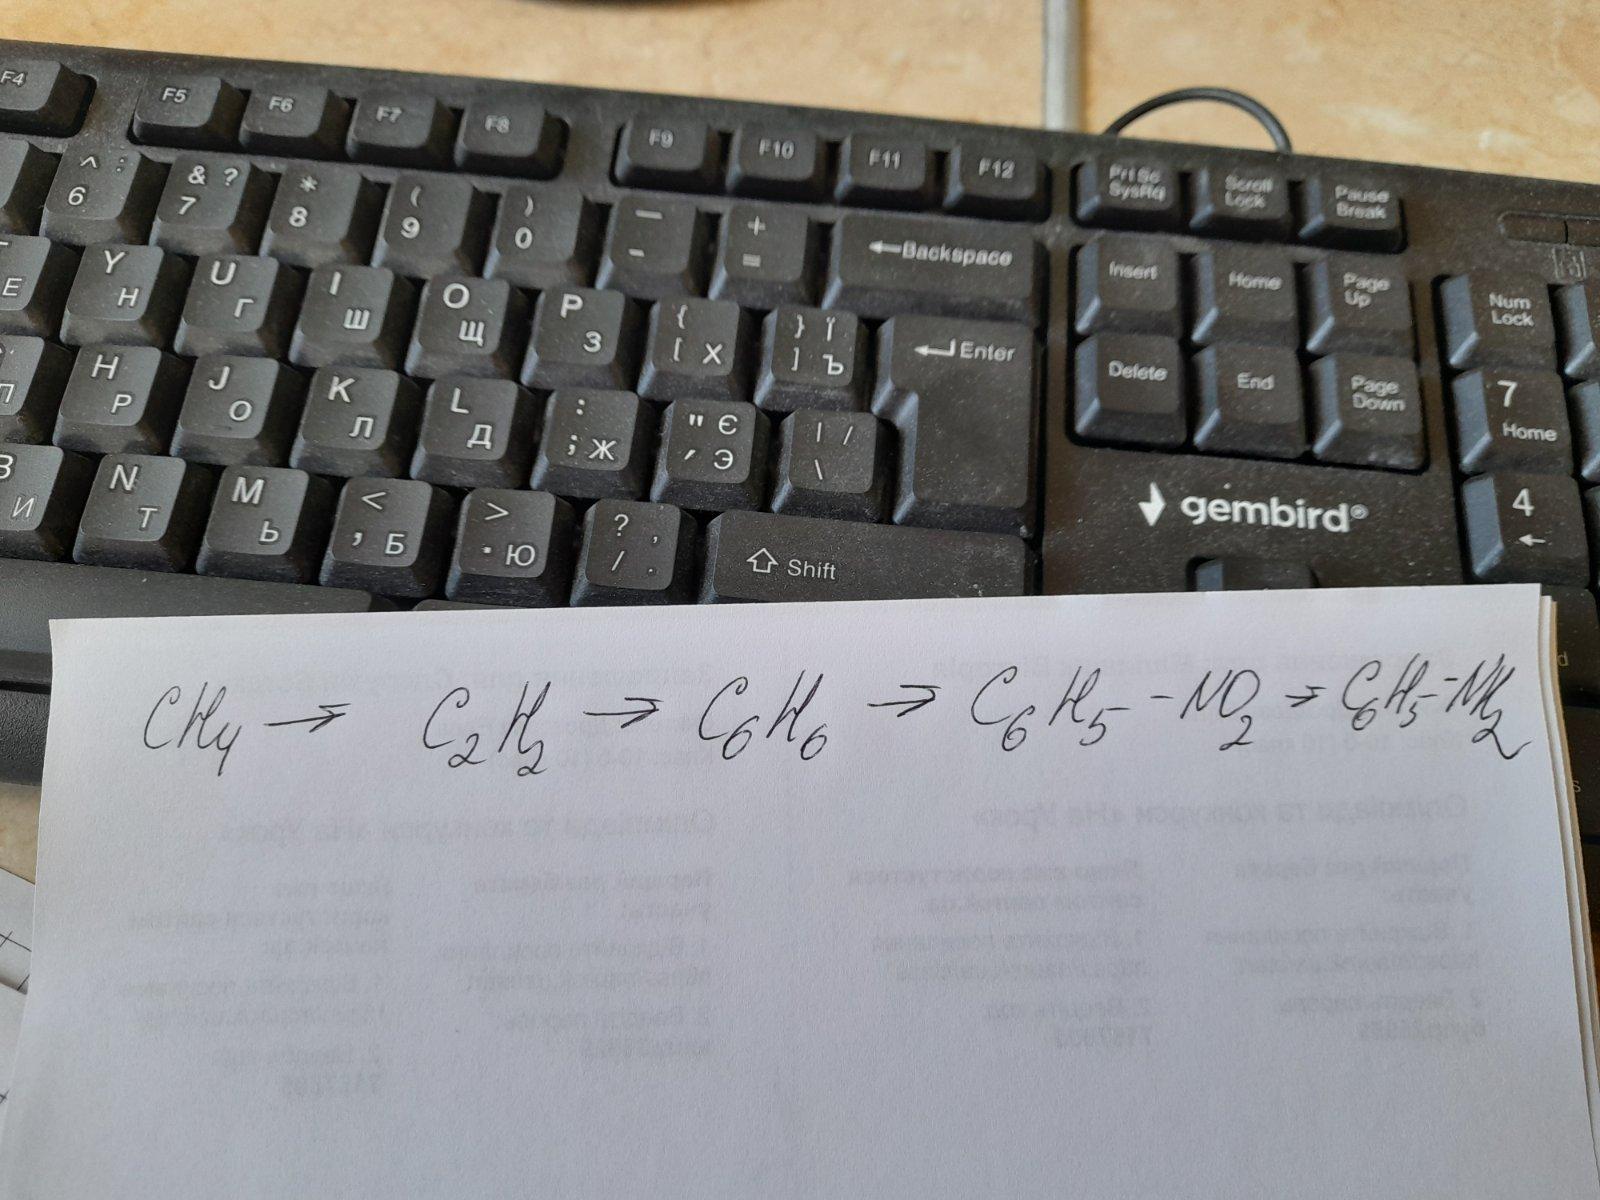 F4 F5 F6 F7 F8 F9 F10 F11 F12 Prt Sc SysRq Scroll Lock Pause Break
^ : 6 & ? 7 * 8 ( 9 ) 0 — - + = ←Backspace Insert Home Page Up Num Lock
Е Y Н U Г I Ш O Щ P З { [ Х } Ї ] Ъ Enter Delete End Page Down 7 Home
П H Р J О K Л L Д : ; Ж " Є ' Э | / \ 4 ←
В И N Т M Ь < , Б > . Ю ? , / . Shift
gembird®
CH₄ → C₂H₂ → C₆H₆ → C₆H₅-NO₂ → C₆H₅-NH₂